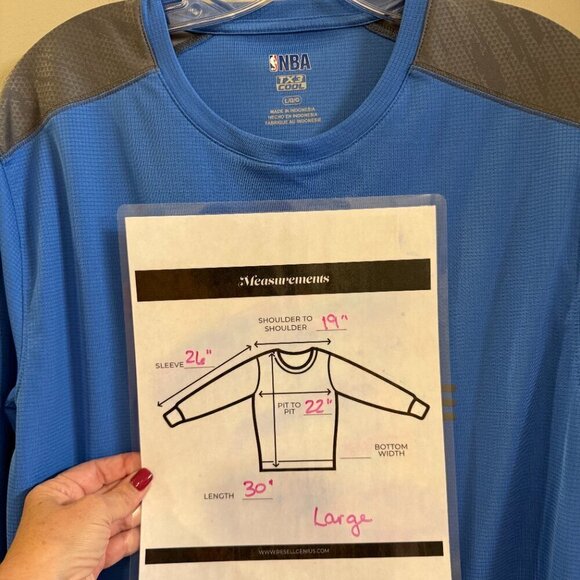 NBA
TX3
COOL
L/G/G
MADE IN INDONESIA
HECHO EN INDONESIA
FABRIQUÉ AU INDONESIE
Measurements
SHOULDER TO
SHOULDER 19"
SLEEVE 26"
PIT TO
PIT 22"
BOTTOM
WIDTH
LENGTH 30"
Large
WWW.RESELLGENIUS.COM